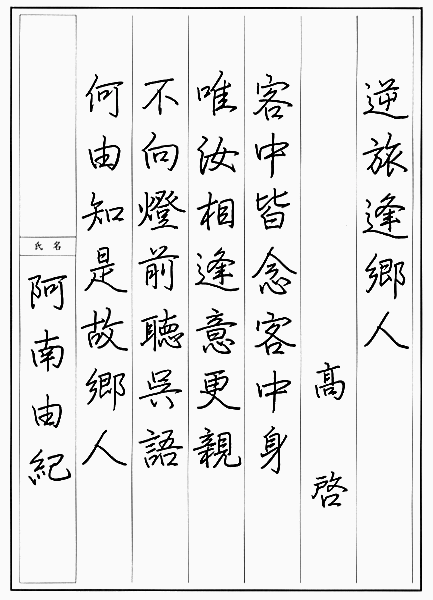 逆旅逢郷人
高啓
客中皆念客中身
唯汝相逢意更親
不向燈前聴呉語
何由知是故郷人
氏名
阿南由紀